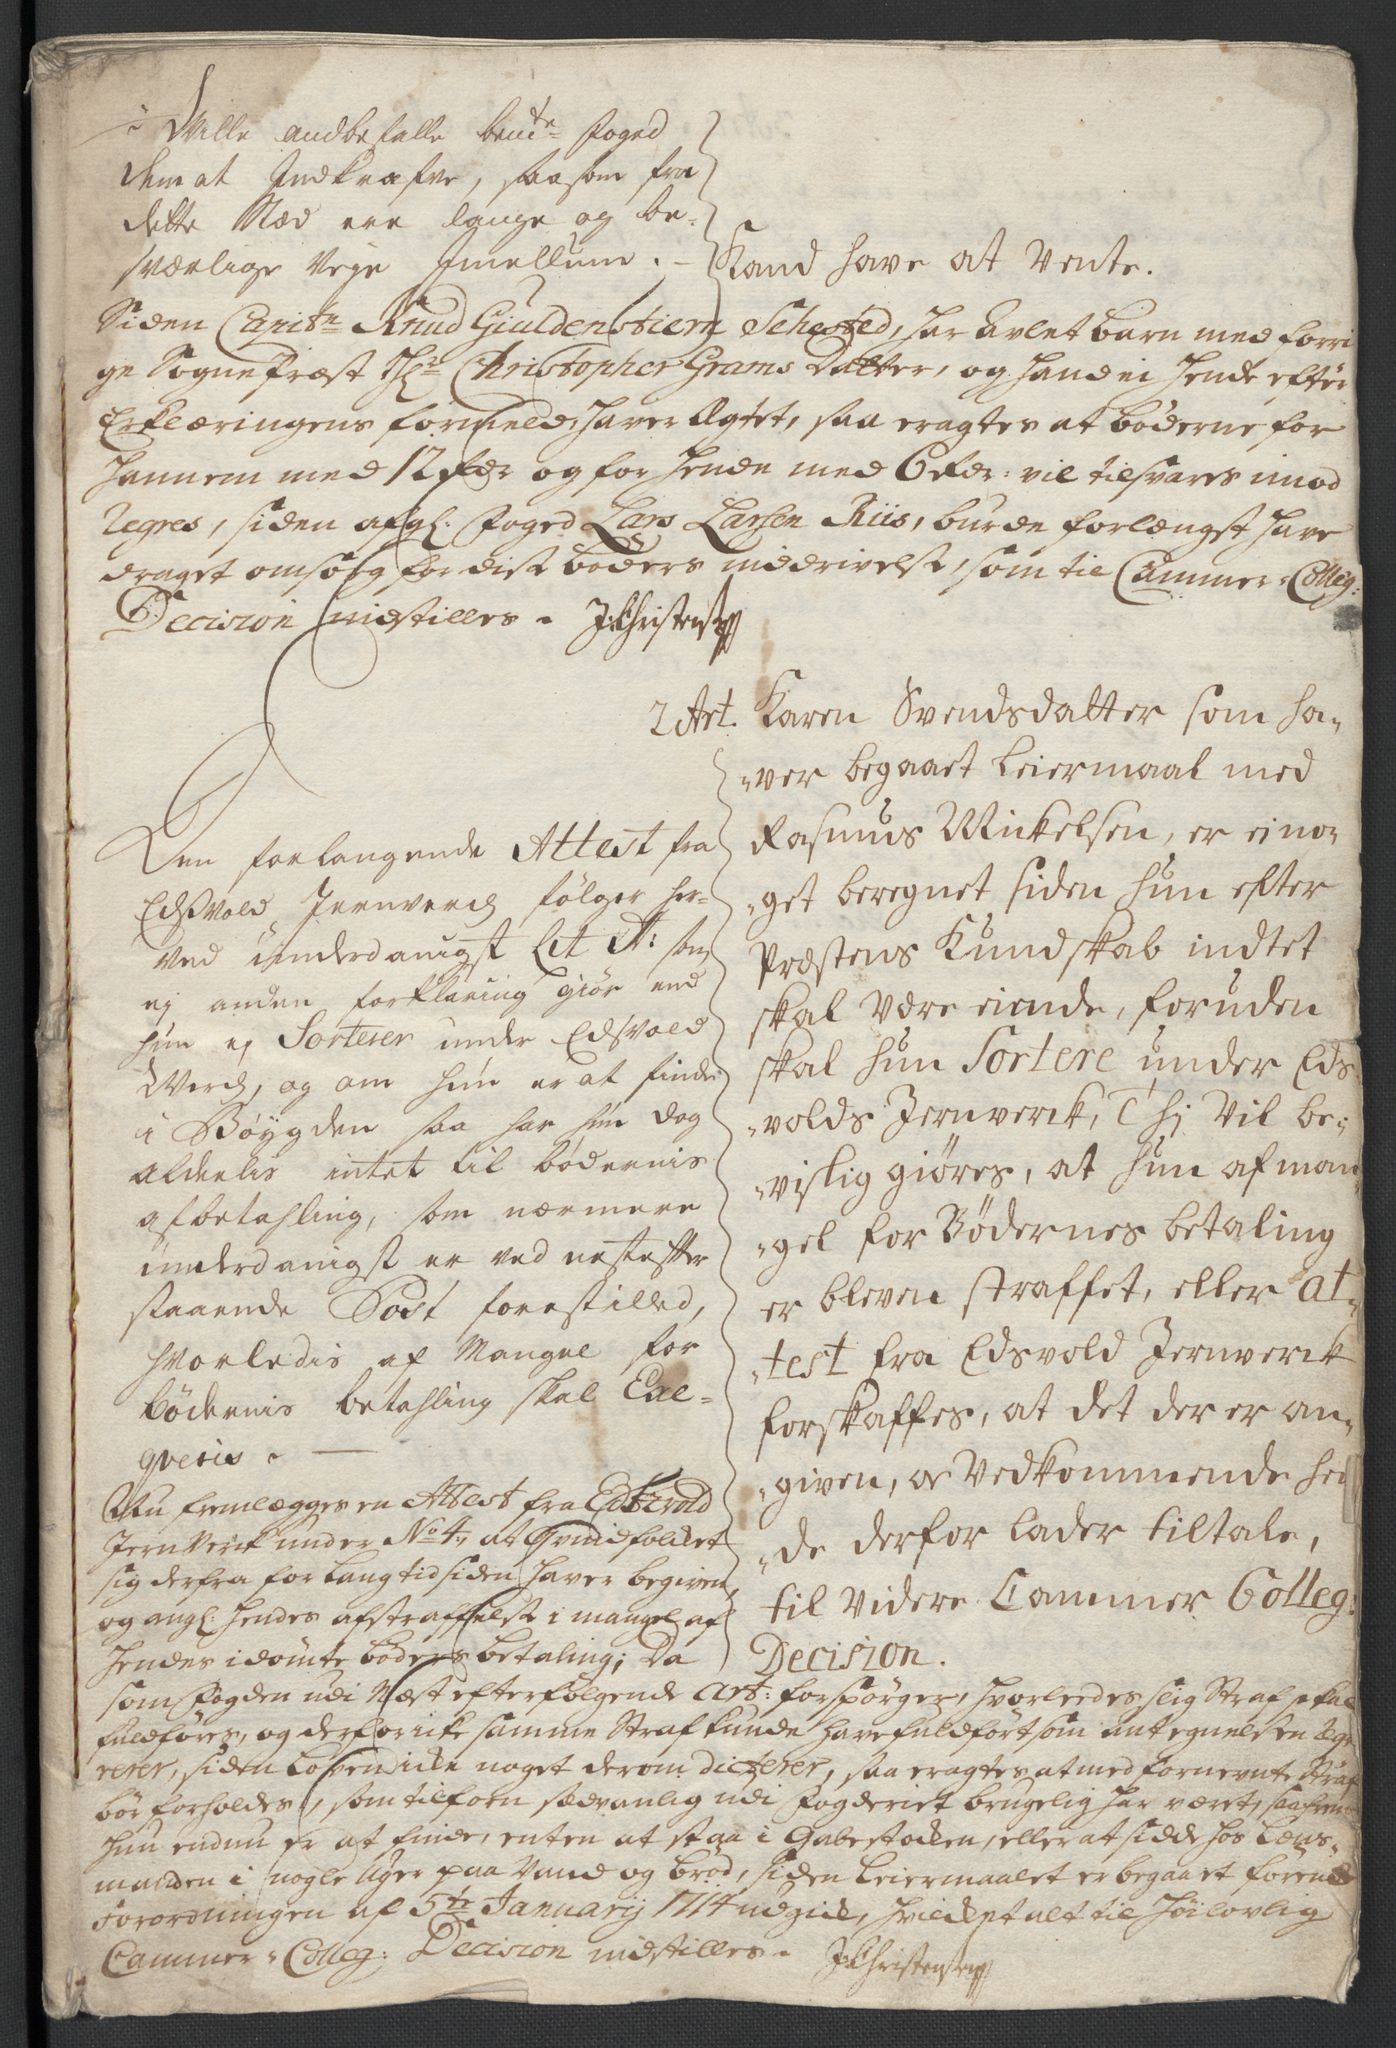 i Wille andbefalle bemte Foged
dem at Indkræfve, saasom fra
dette Stæd ere lange og be-
sværlige Veye Imellum. -
Kand have at Vente.
Siden Capitn Knud Giuldenstiern Sehested, har Avlet barn med forri
ge Sognepræst Hr Christopher Grams Datter, og hand ei hende efter
Erklæringens formeld, haver Ægtet, saa eragtes at bøderne for
hannem med 12 rdr og for hende med 6 rdr: vil tilsvares imod
Regres, siden afgl. Foged Lars Larsen Riis, burde forlængst have
draget omsorg for disse bøders inddrivelse, som til Cammer-Colleg:
Decision indstilles. J:Christensen
2 Art. Karen Svendsdatter som ha-
-ver begaaet Leiermaal med
Rasmus Mickelsen, er ei no-
-get beregnet siden hun efter
Præstens Kundskab indtet
skal være eiende, foruden
skal hun Sortere under Eds
-volds Jernverck, Thj Vil be-
-vislig giøres, at hun af man
-gel for Bødernes betaling
er bleven straffet, eller at-
-test fra Edsvold Jernverck
forskaffes, at det der er an-
-given, og Vedkommende hen
-de derfor lader tiltale,
til Videre Cammer Colleg:
Decision.
Den forlangende Attest fra
Edsvold Jernverck følger her-
ved underdanigst Lit A: som
ej anden forklaring giør end
hun ej Sorterer under Edsvold
Werck, og om hun er at finde
i Bøygden saa har hun dog
alderlis intet til bødernis
afbetahling, som nærmere
underdanigst er ved nestefter
staaende Post forestilled,
hvorledis af Mangel for
bødernis betahling skal Exe-
qveris. -
Nu fremlegges en Attest fra Edtzvold
JernVerk under No 4, at Qvindfolcket
sig derfra for lang tid siden haver begiven,
og angl: hendes afstraffelse i mangel af
hendes idømte bøders betaling; Da
som Fogden udi Næst efterfølgende Art: forspørger, hvorledes slig Straf skal
fuldføres, og derfor icke samme Straf kunde have fuldført som antegnelsen Regi
rerer, siden Loven icke noget derom dicterer, saa eragtes at med fornevnte Straf
bør forholdes, som tilforn sædvanlig udi Fogderiet brugelig har været, saafremt
hun endnu er at finde, enten at staa i Gabestocken, eller at sidde hos Læns-
manden i nogle Uger paa Vand og brød, siden Leiermaalet er begaaet førend
Forordningen af 5te Januarij 1714 udgick, hvilcket alt til Høilovlig
Cammer-Colleg: Decision indstilles. J:Christensen